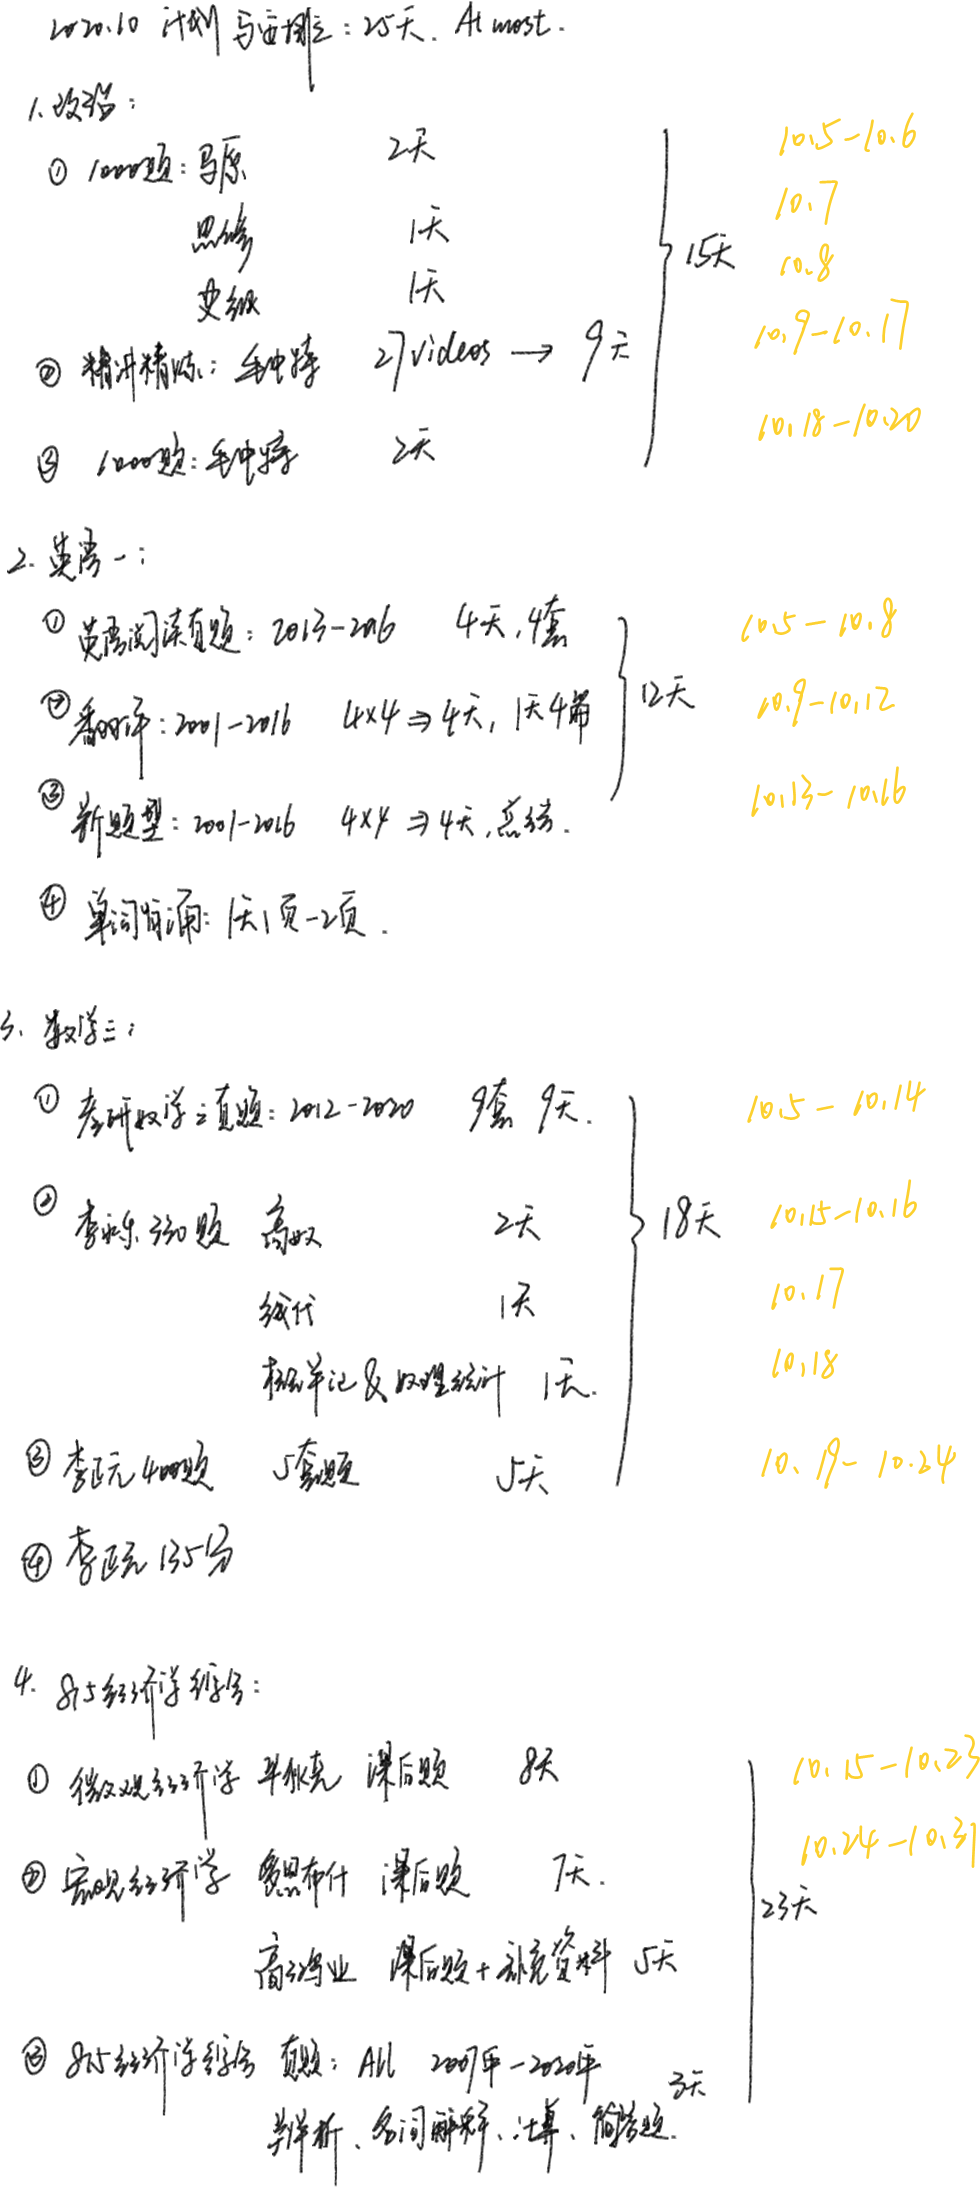 2020.10 计划 与安排：25天. At most.
1. 政治：
① 1000题：马原 2天 10.5-10.6
思修 1天 10.7
史纲 1天 } 15天 10.8
② 精讲精练：毛中特 27videos → 9天 10.9-10.17
③ 1000题：毛中特 2天 10.18-10.20
2. 英语一：
① 英语阅读真题：2013-2016 4天，4套 10.5-10.8
② 翻译：2001-2016 4x4 ⇒ 4天，1天4篇 } 12天 10.9-10.12
③ 新题型：2001-2016 4x4 ⇒ 4天，总结. 10.13-10.16
④ 单词背诵：1天1页-2页.
3. 数学三：
① 考研数学三真题：2012-2020 9套 9天. 10.5-10.14
② 李永乐 330题 高数 2天 } 18天 10.15-10.16
线代 1天 10.17
概率论 & 数理统计 1天. 10.18
③ 李正元400题 5套题 5天 10.19-10.24
④ 李正元 135分
4. 815经济学综合：
① 微观经济学 平狄克 课后题 8天 10.15-10.23
② 宏观经济学 多恩布什 课后题 7天. 10.24-10.31
高鸿业 课后题+补充资料 5天 } 23天
③ 815经济学综合 真题：All 2007年-2020年
辨析、名词解释、计算、简答题. 3天